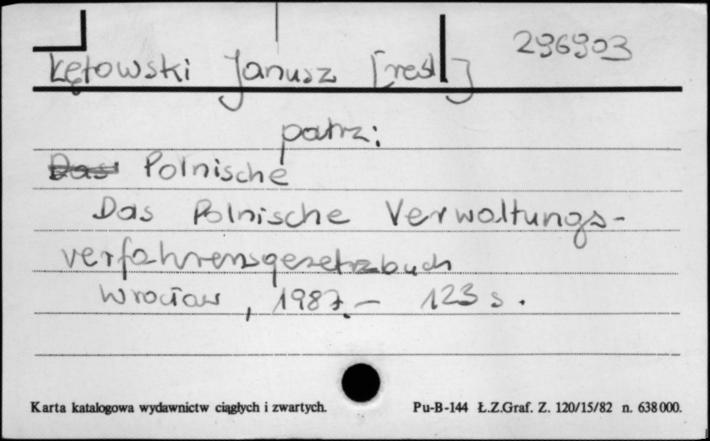 296903
Łętowski Janusz [red]
patrz:
Das Polnische
Das Polnische Verwaltungs-
verfahrensgesetzbuch
Wrocław, 1987. - 123 s.
Karta katalogowa wydawnictw ciągłych i zwartych. Pu-B-144 Ł.Z.Graf. Z. 120/15/82 n. 638000.